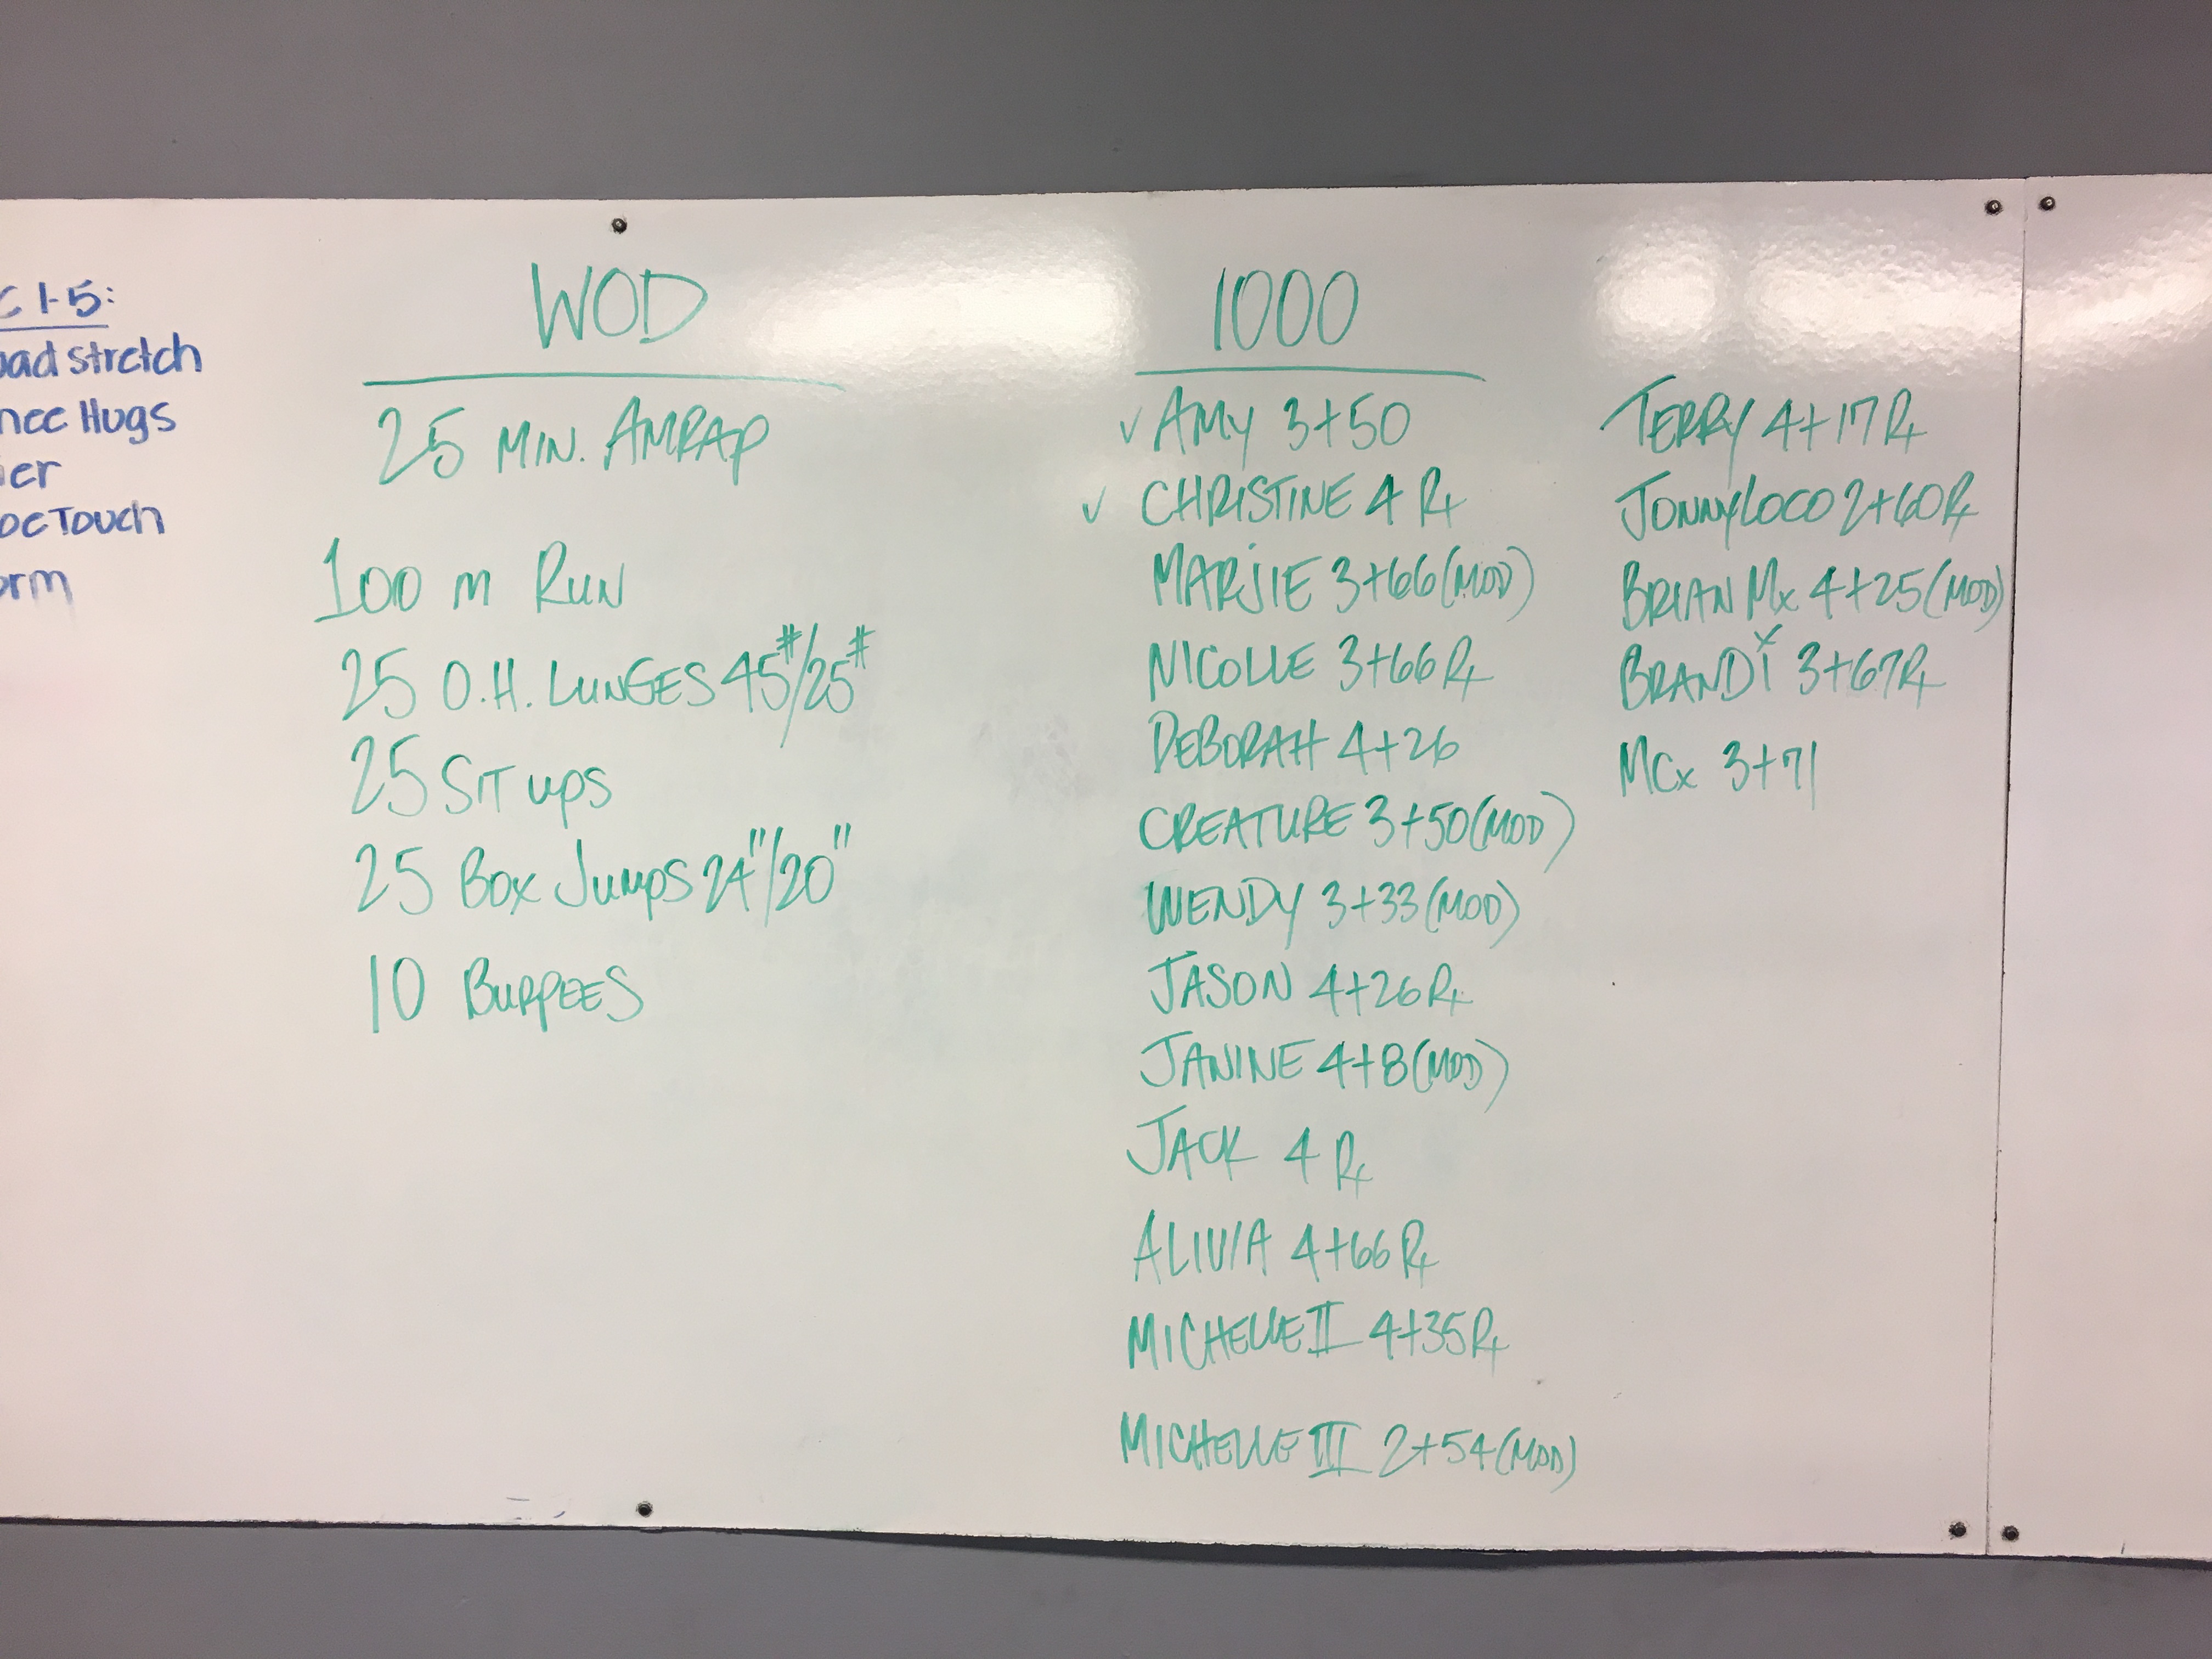 C 1-5:
stretch
Hugs
Touch
WOD
25 MIN. AMRAP
100 m RUN
25 O.H. LUNGES 45#/25#
25 SIT UPS
25 BOX JUMPS 24"/20"
10 BURPEES
1000
✓ AMY 3+50
✓ CHRISTINE 4 Rx
MARJIE 3+66 (MOD)
NICOLLE 3+66 Rx
DEBORAH 4+26
CREATURE 3+50 (MOD)
WENDY 3+33 (MOD)
JASON 4+26 Rx
JANINE 4+8 (MOD)
JACK 4 Rx
ALIVIA 4+66 Rx
MICHELLE II 4+35 Rx
MICHELLE III 2+54 (MOD)
TERRY 4+17 Rx
JONNYLOCO 2+60 Rx
BRIAN Mx 4+25 (MOD)
BRANDI 3+67 Rx
MCx 3+71